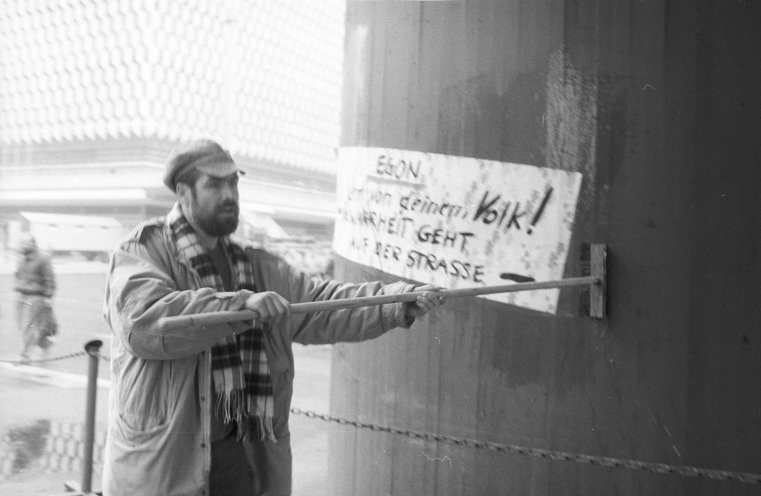 EGON
von deinem Volk!
WAHRHEIT GEHT
AUF DER STRASSE –